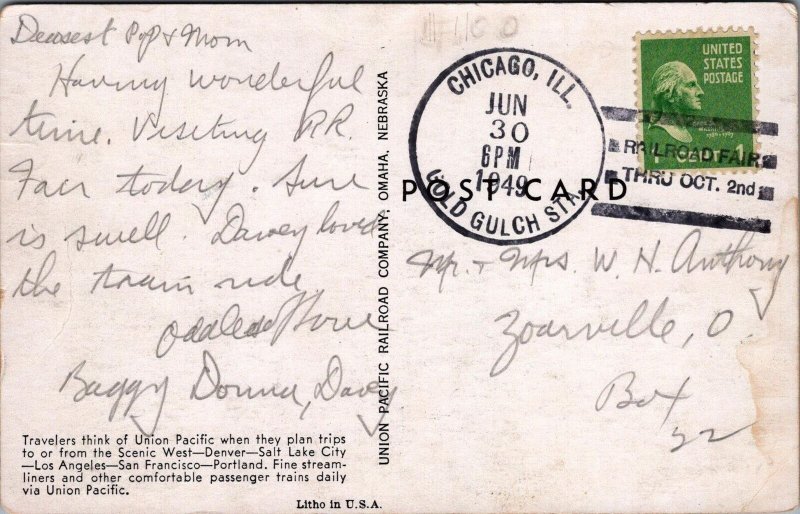 Dearest Pop & Mom
Having wonderful
time. Visiting RR.
Fair today. Sure
is swell. Davey loved
the train ride
love
Baggy Donna, Davey
Travelers think of Union Pacific when they plan trips
to or from the Scenic West—Denver—Salt Lake City
—Los Angeles—San Francisco—Portland. Fine stream-
liners and other comfortable passenger trains daily
via Union Pacific.
Litho in U.S.A.
UNION PACIFIC RAILROAD COMPANY, OMAHA, NEBRASKA
POST CARD
CHICAGO, ILL.
JUN
30
6PM
1949
GOLD GULCH STA.
RAILROAD FAIR
THRU OCT. 2nd
UNITED
STATES
POSTAGE
1 CENT 1
Mr. + Mrs. W. H. Anthony
Zoarville, O.
Box
22